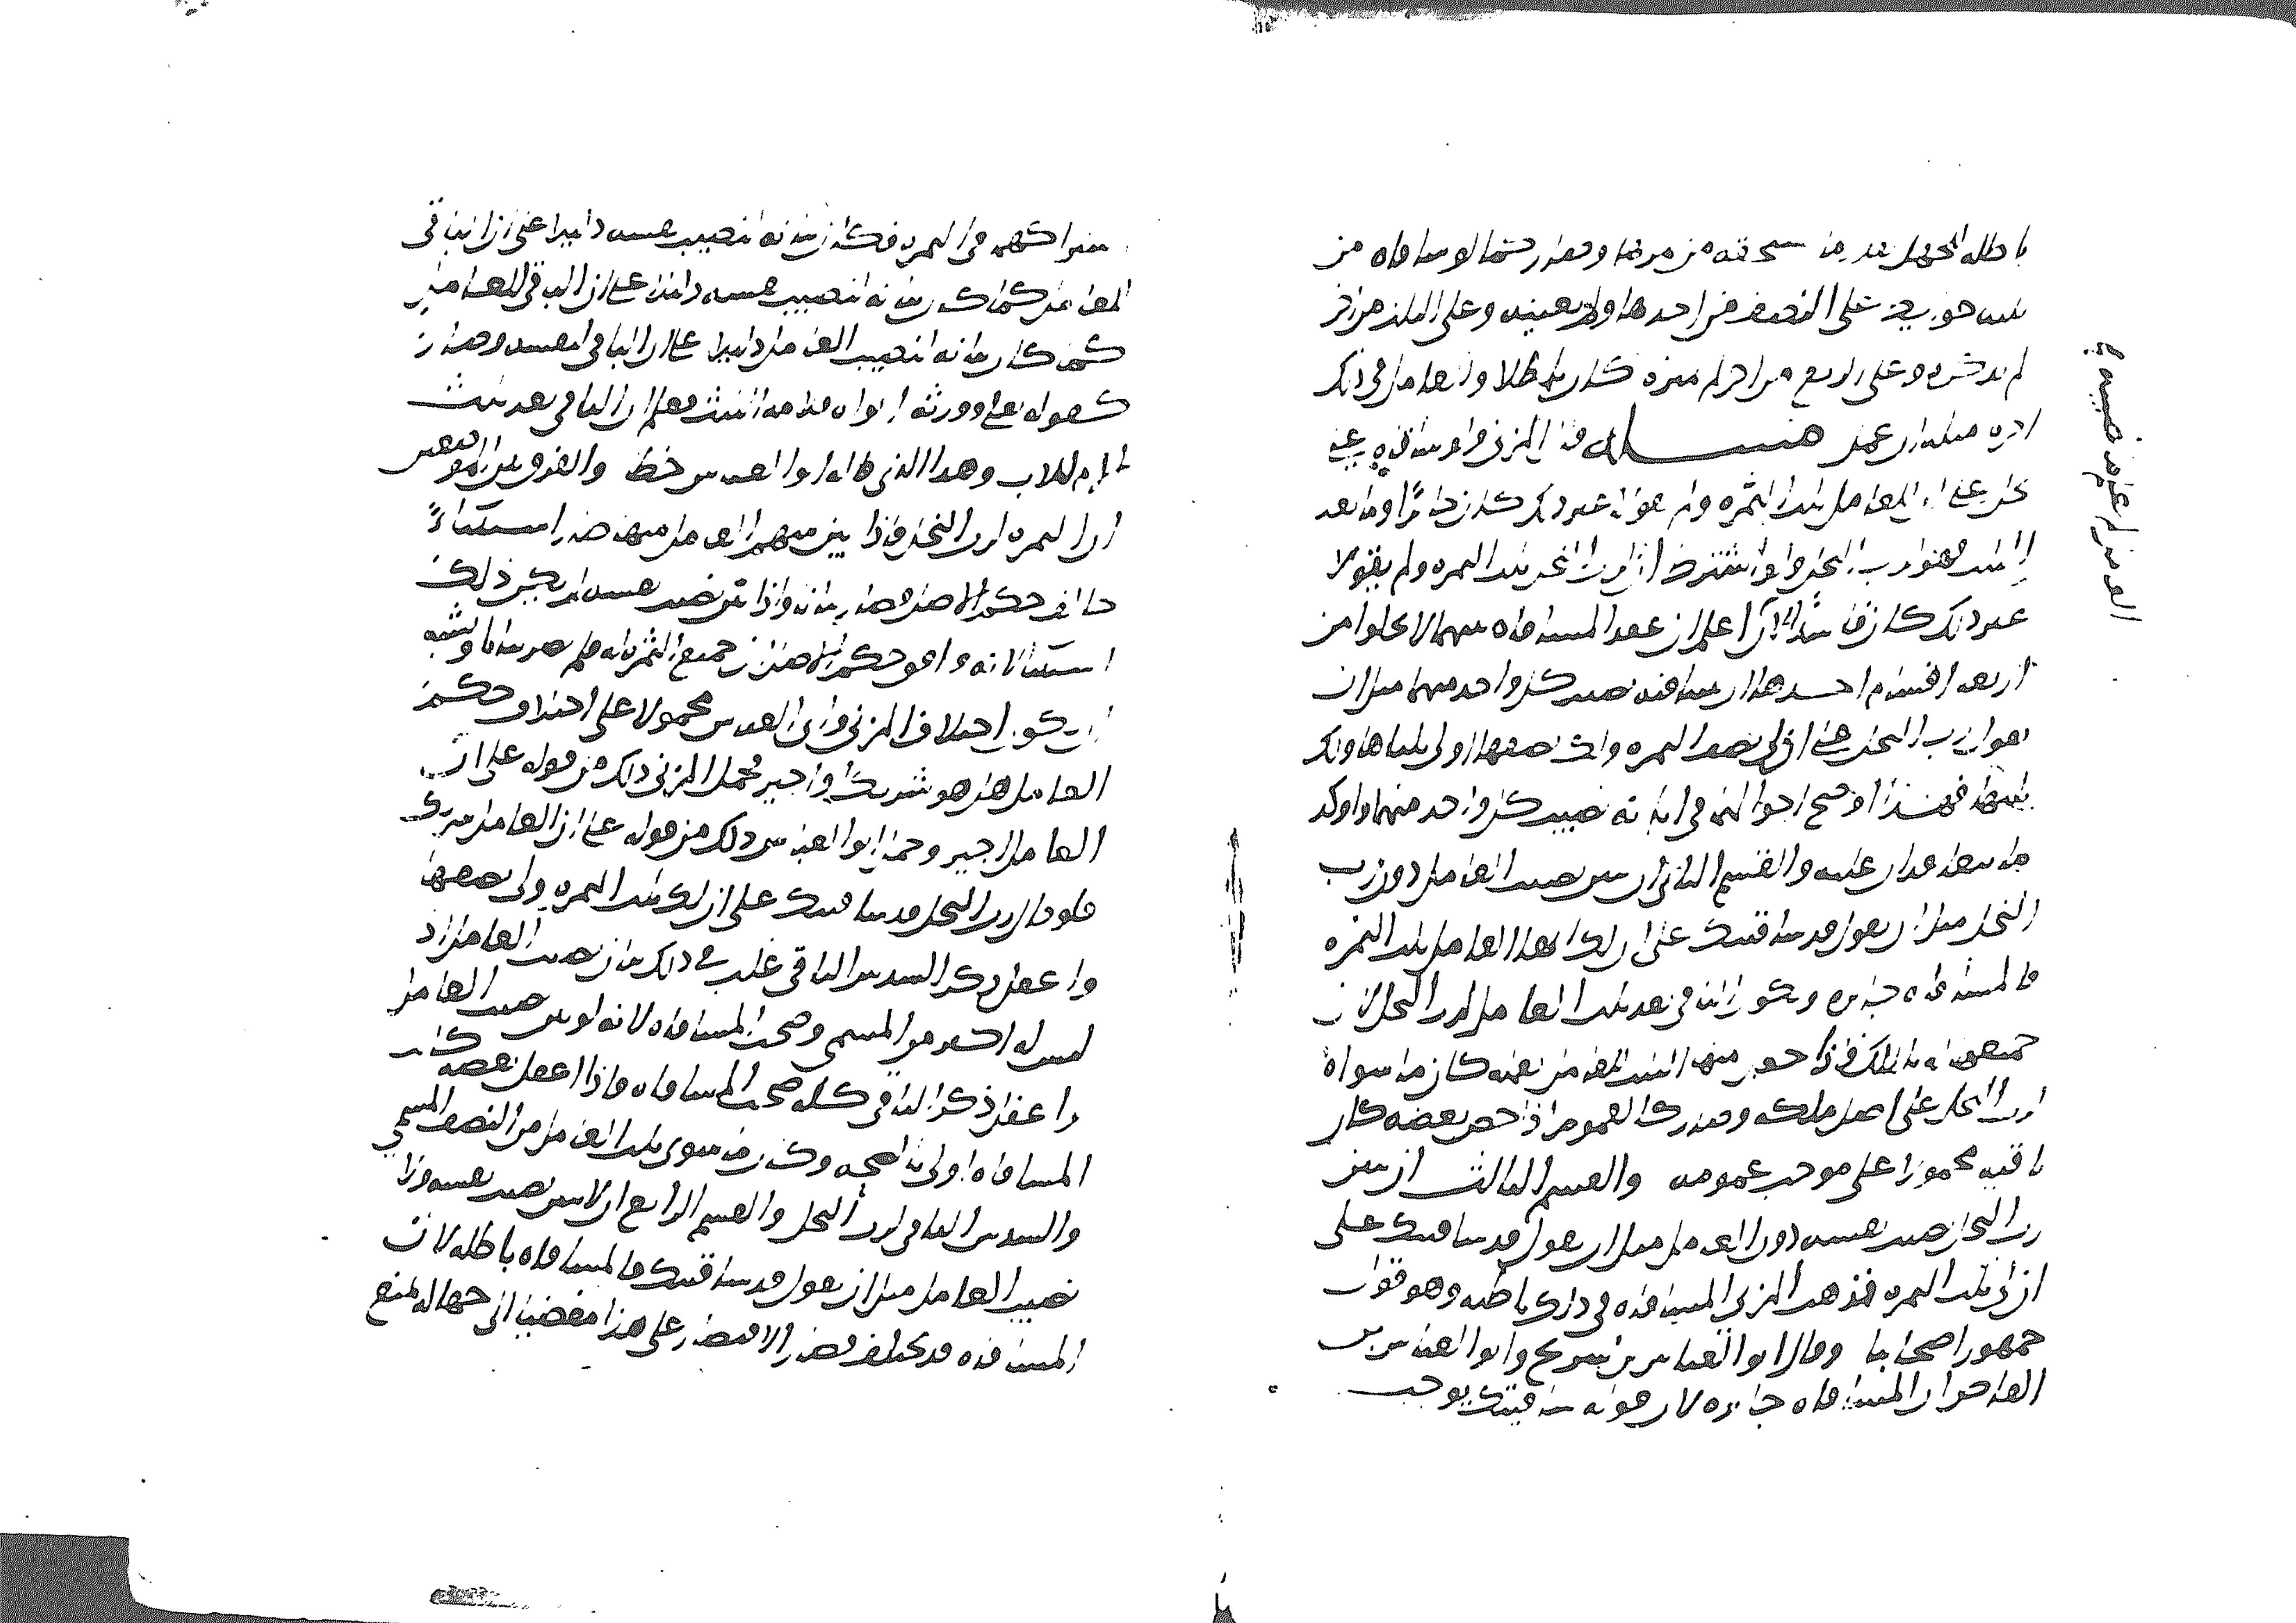 باطله للجهل بقدر ما يستحقه من ثمرتها وهكذا رحمهما لو ساقاه من
ثلث حوايط على النصف من احدها ولم يعينه وعلى الثلث من اخر
لم يذكره وعلى الربع من اخر لم يميزه كان باطلا والعامل في ذلك
اجرة مثله ان عمل مسله قال المزني ولو ساقاه على
نخل على ان للعامل ثلث الثمره ولم يقولا غير ذلك كان جايزا وما بعد
الثلث فهو لرب النخل وان اشترطا ان لرب النخل ثلث الثمره ولم يقولا
غير ذلك كان فاسدا اعلم ان عقد المساقاه بينهما لا يخلوا من
اربعه اقسام احدها ان يبينا فيه نصيب كل واحد منهما مثل ان
يقول رب النخل على ان لي نصف الثمره ولك نصفها او لي ثلثاها ولك
ثلثها فهذا اوضح احوالهما في ابانه نصيب كل واحد منهما واوكد
ما يتعاقدان عليه والقسم الثاني ان يبين نصيب العامل دون رب
النخل مثل ان يقول قد ساقيتك على ان لك ايها العامل ثلث الثمره
فالمساقاه جايزه ويكون الباقي بعد ثلث العامل لرب النخل لان
جميعها له بالملك فاذا جعل منها الثلث للعامل بعمله كان ما سواه
لرب النخل على اصل ملكه وصار كالعموم اذا خص بعضه كان
باقيه محمولا على موجب عمومه والقسم الثالث ان يبين
رب النخل نصيب نفسه دون العامل مثل ان يقول قد ساقيتك على
ان لي ثلث الثمره فمذهب المزني المساقاه في ذلك باطله وهو قول
جمهور اصحابنا وقال ابو العباس بن سريج وابو العباس بن
القاص ان المساقاه جايزه لان قوله ساقيتك يوجب
اشتراكهما في الثمره فكان بيانه لنصيب نفسه دليلا على ان الباقي
للعامل كما كان بيانه لنصيب نفسه دليلا على ان الباقي للعامل
كما كان بيانه لنصيب العامل دليلا على ان الباقي لنفسه وصار
كقوله تعلى وورثه ابواه فلامه الثلث فعلم ان الباقي بعد ثلث
الام للاب وهذا الذي قاله ابوا العباس خطا والفرق بين الموضعين
ان الثمره لرب النخل فاذا بين سهم العامل منها صار استثناءً
خالف حكم الاصل فصار بيانا واذا بين نصيب نفسه لم يكن ذلك
استثناء لانه وافق حكم الاصل لان جميع الثمره له فلم يصر بيانا ويشبه
ان يكون اختلاف المزني وابي العباس محمولا على اختلاف حكم
العامل هل هو شريك او اجير فحمل المزني ذلك من قوله على ان
العامل اجير وحمل ابو العباس ذلك من قوله على ان العامل شريك
فلو قال رب النخل قد ساقيتك على ان لك ثلث الثمره ولي نصفها
واغفل ذكر السدس الباقي غلب في ذلك بيان نصيب العامل اذ
ليس له اكثر من المسمى وصحت المساقاه لانه لو بين نصيب العامل
واغفل ذكر الباقي كله صحت المساقاه فاذا اغفل بعضه كانت
المساقاه اولى بالصحه وكان ما سوى ثلث العامل من النصف المسمى
والسدس الباقي لرب النخل والقسم الرابع ان لا يبين نصيب نفسه ولا
نصيب العامل مثل ان يقول قد ساقيتك فالمساقاه باطله لان
المساقاه قد تختلف فصار الاقتصار على هذا مفضيا الى جهاله تمنع